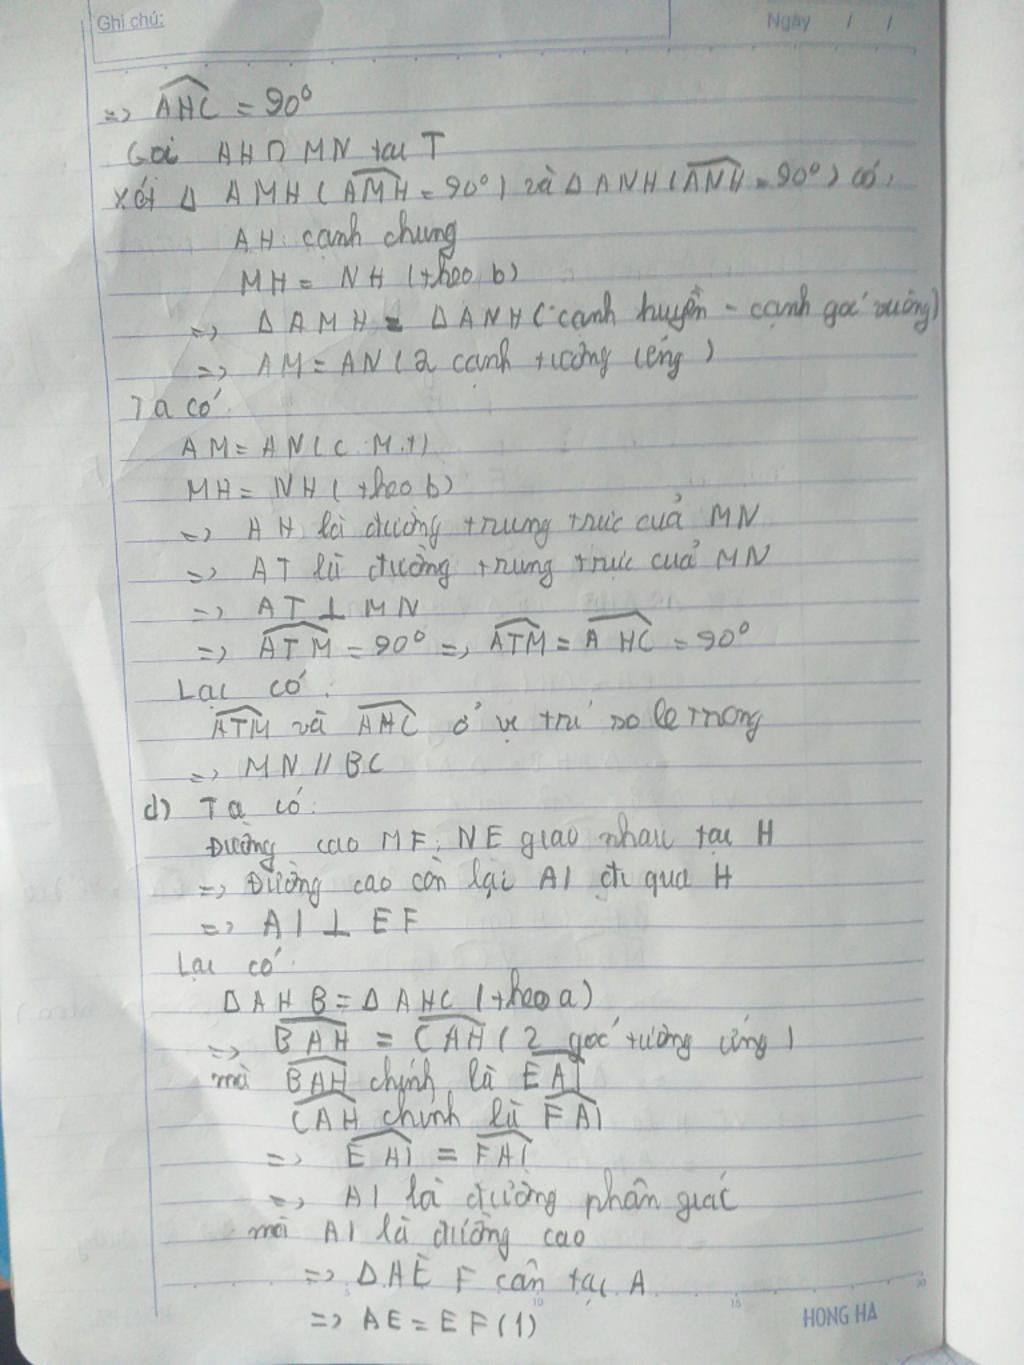 Ghi chú:
Ngày / /
=> AHC = 90°
Gọi AH ∩ MN tại T
Xét Δ AMH (AMH = 90°) và Δ ANH (ANH = 90°) có:
AH: cạnh chung
MH = NH (theo b)
=> Δ AMH = Δ ANH (cạnh huyền - cạnh góc vuông)
=> AM = AN (2 cạnh tương ứng)
Ta có:
AM = AN (C.M.t)
MH = NH (theo b)
=> AH là đường trung trực của MN
=> AT là đường trung trực của MN
=> AT ⊥ MN
=> ATM = 90° => ATM = AHC = 90°
Lại có:
ATM và AHC ở vị trí so le trong
=> MN // BC
d) Ta có:
Đường cao MF, NE giao nhau tại H
=> Đường cao còn lại AI đi qua H
=> AI ⊥ EF
Lại có:
Δ AHB = Δ AHC (theo a)
=> BAH = CAH (2 góc tương ứng)
mà BAH chính là EAI
CAH chính là FAI
=> EAI = FAI
=> AI là đường phân giác
mà AI là đường cao
=> Δ AEF cân tại A
=> AE = EF (1)
5 10 15 20
HONG HA